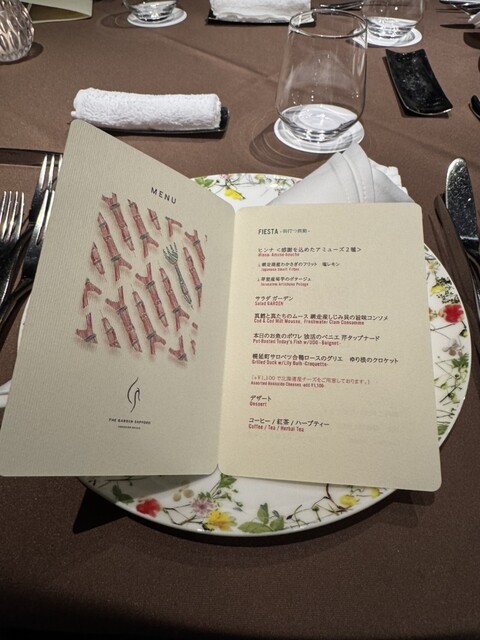 MENU
THE GARDEN SAPPORO
FIESTA
ピンナ <感謝を込めたアミューズ2種>
Japanese Smelt Fries
Jerusalem Artichoke Potage
サラダ ガーデン
Salad GARDEN
真鱈と真たちのムース 網走産しじみ貝の旨味コンソメ
Cod & Cod Milt Mousse, Freshwater Clam Consommé
本日のお魚のポワレ 独活のベニエ 芹タップナード
Pot-Roasted Today's Fish w/UDO -Beignet-
幌延町サロベツ合鴨ロースのグリエ ゆり根のクロケット
Grilled Duck w/Lily Bulb -Croquette-
(+¥1,100で北海道産チーズをご用意しております。)
Assorted Hokkaido Cheeses add ¥1,100
デザート
Dessert
コーヒー / 紅茶 / ハーブティー
Coffee / Tea / Herbal Tea